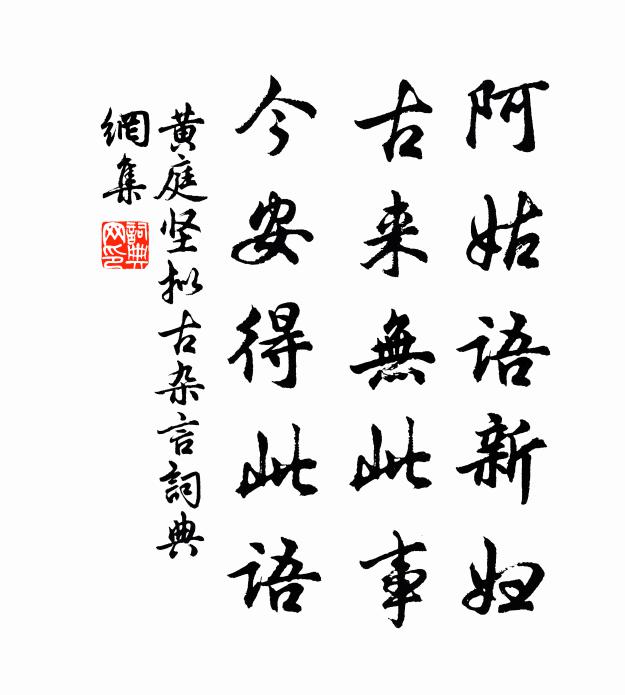 阿姑语新妇
古来無此事
今安得此语
黄庭坚拟古杂言詞典
網集
詞典
网印